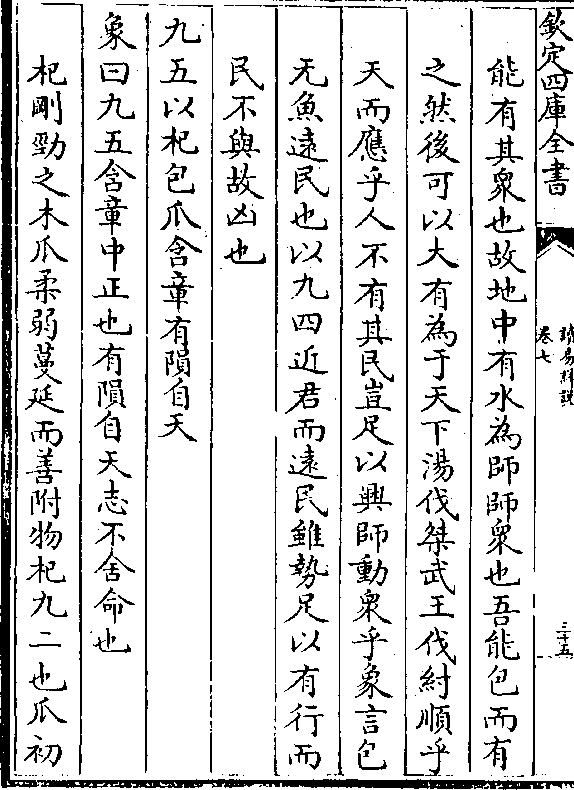 欽定四庫全書
讀易詳說
卷七
三十五
能有其衆也故地中有水為師師衆也吾能包而有
之然後可以大有為于天下湯伐桀武王伐紂順乎
天而應乎人不有其民豈足以興師動衆乎象言包
无魚遠民也以九四近君而遠民雖勢足以有行而
民不與故凶也
九五以杞包瓜含章有隕自天
象曰九五含章中正也有隕自天志不舍命也
杞剛勁之木瓜柔弱蔓延而善附物杞九二也瓜初